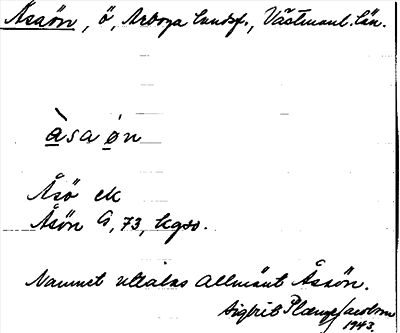 Åsaön, ö, Arboga landsf., Västmanl. län.
àsa øn
Åsö ek
Åsön G, 73, kgso.
Namnet uttalas allmänt Åsaön.
Sigfrid
1943.